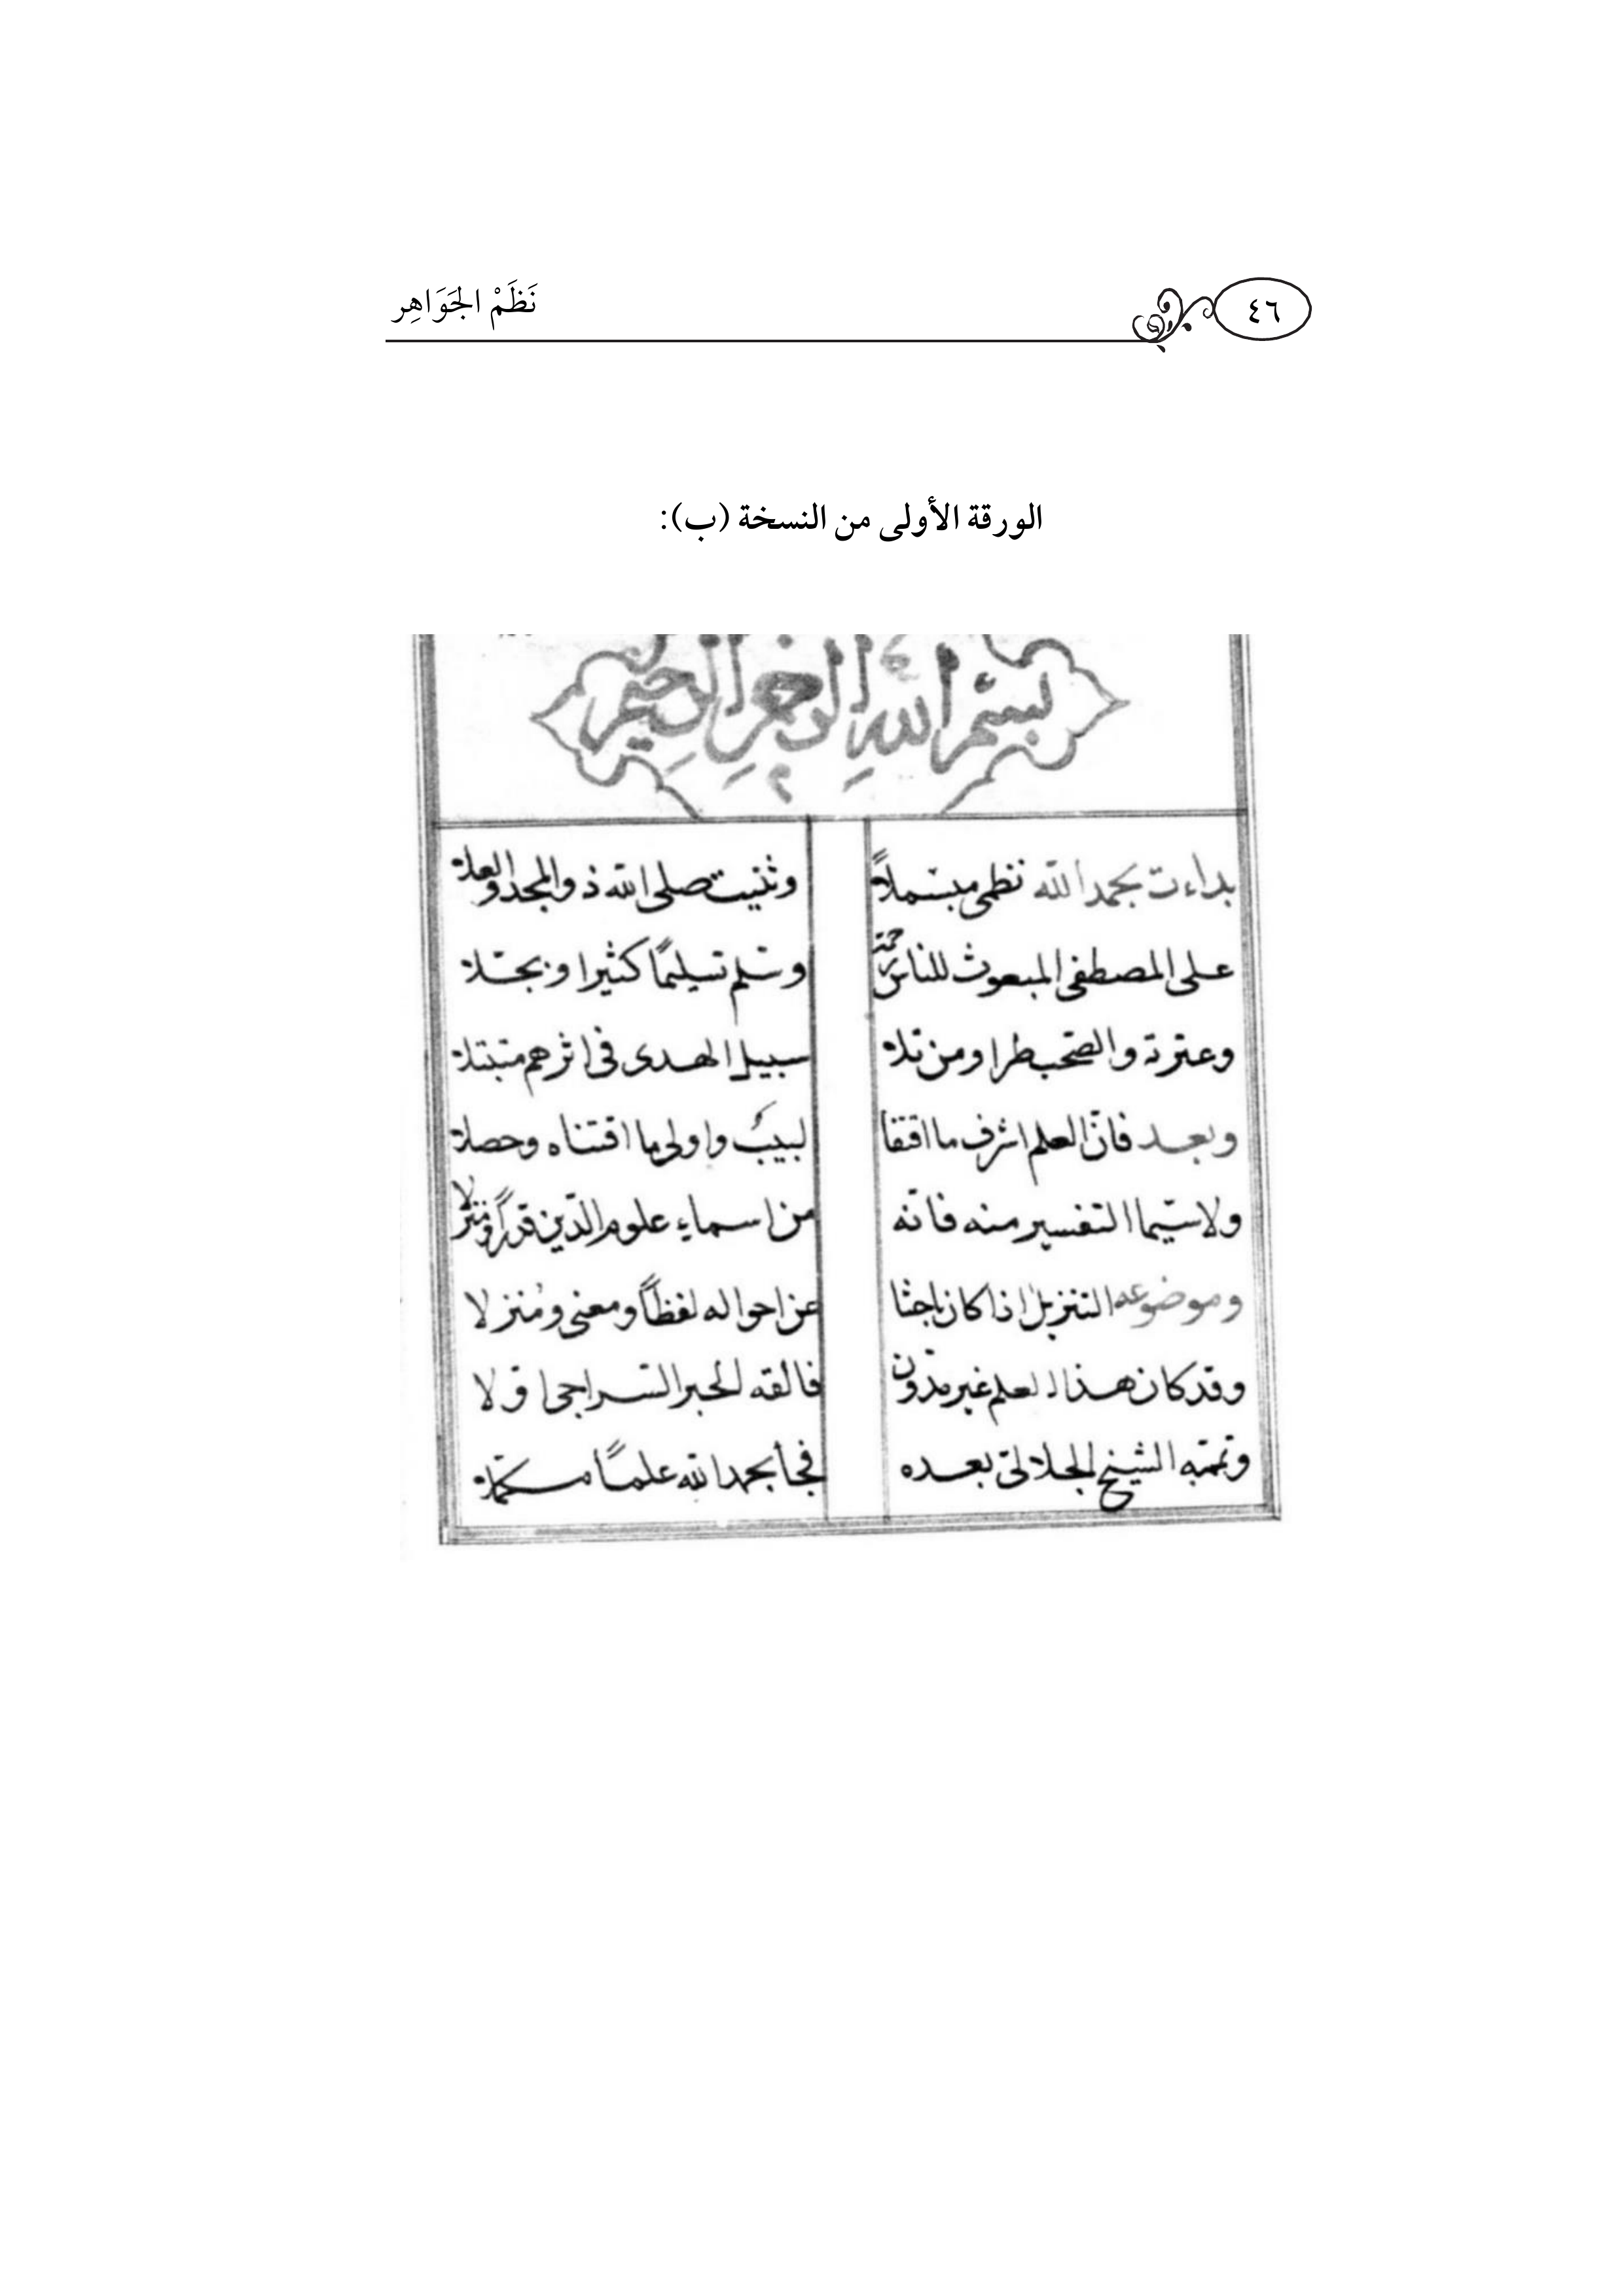 ٤٦
نَظَمْ الجَوَاهِر
الورقة الأولى من النسخة (ب):
بسم الله الرحمن الرحيم
بداءت بحمد الله نظمى مبسملاً وثنيت صلى الله ذو المجد والعلا
على المصطفى المبعوث للناس رحمة وسلم تسليمًا كثيرا وبجلا
وعترته والصّحب طرا ومن تلا سبيل الهدى فى اثرهم متبتلا
وبعد فانّ العلم اشرف ما اقتفا لبيبٌ واولى ما اقتناه وحصلا
ولا سيّما التفسير منه فانّه من اسماءِ علوم الدّين قدرًا ومنزلا
وموضوعه التنزيل اذا كان باحثا عن احواله لفظاً ومعنى ومُنزلا
وقد كان هذا العلم غير مدّون فالفه الحبر السّراجى اوّلا
وتممّه الشيخ الجلالىّ بعده فجأ بحمد الله علمًا مكمّلا